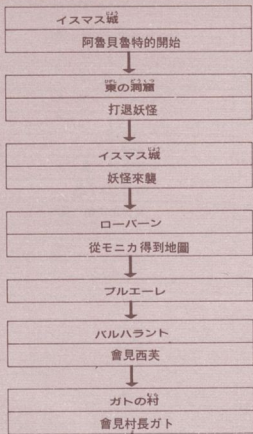 イスマス城
阿魯貝魯特的開始
東の洞窟
打退妖怪
イスマス城
妖怪來襲
ローバーン
從モニカ得到地圖
ブルエーレ
バルハラント
會見西芙
ガトの村
會見村長ガト